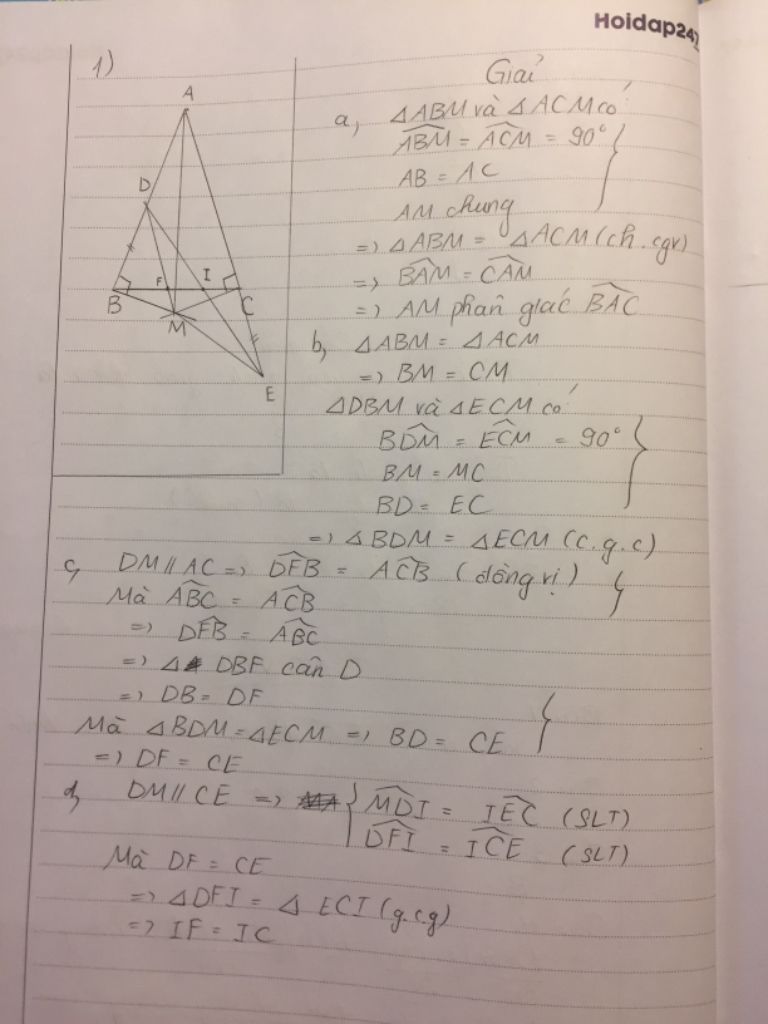 Hoidap247
1)
A
D
F
I
B
C
M
E
Giải
a, ΔABM và ΔACM có
\widehat{ABM} = \widehat{ACM} = 90°
AB = AC
AM chung
=> ΔABM = ΔACM (ch. cgv)
=> \widehat{BAM} = \widehat{CAM}
=> AM phân giác \widehat{BAC}
b, ΔABM = ΔACM
=> BM = CM
ΔDBM và ΔECM có
\widehat{BDM} = \widehat{ECM} = 90°
BM = MC
BD = EC
=> ΔBDM = ΔECM (c.g.c)
c, DM // AC => \widehat{DFB} = \widehat{ACB} (đồng vị)
Mà \widehat{ABC} = \widehat{ACB}
=> \widehat{DFB} = \widehat{ABC}
=> Δ DBF cân D
=> DB = DF
Mà ΔBDM = ΔECM => BD = CE
=> DF = CE
d, DM // CE => { \widehat{MDI} = \widehat{IEC} (SLT)
\widehat{DFI} = \widehat{ICE} (SLT)
Mà DF = CE
=> ΔDFI = Δ ECI (g.c.g)
=> IF = IC